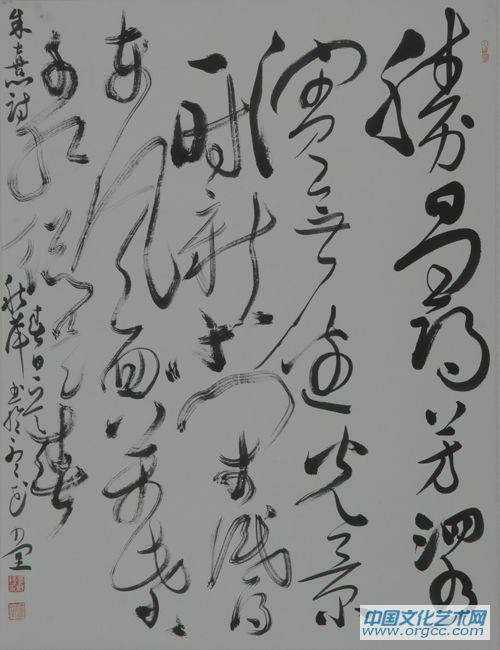 勝日尋芳泗水
濱無邊光景
一時新等閒識得
東風面萬紫
千紅總是春
朱熹詩春日
中国文化艺术网
www.orgcc.com